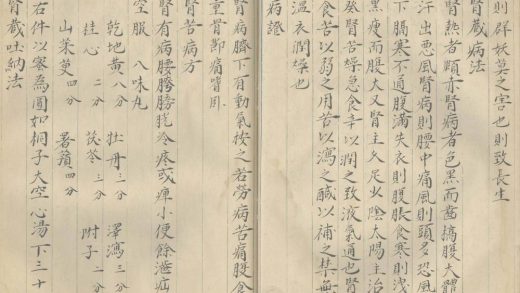 則群妖莫之害也則致長生
腎藏病法
腎熱者頰赤腎病者色黑而齒槁腹大體
汗出惡風腎病則腰中痛風則頭多恐風
下膈塞不通腹滿失衣則腹脹食寒則洩
黑瘦而腹大又腎主久足少陰太陽主治
癸腎苦燥急食辛以潤之致液氣通也腎
食苦以弱之用苦以瀉之鹹以補之禁無
溫衣潤燥也
病證
腎病臍下有動氣按之若勞病苦痛腹食
重骨節痛嗜卧
苦病方
腎有病腰胯膀胱冷疼或痺小便餘瀝疝
空服八味丸
乾地黃八分 牡丹三分 澤瀉三分
桂心二分 茯苓三分 附子二分
山茱萸四分 署蕷四分
右件以蜜為圓如桐子大空心湯下三十
腎藏吐納法